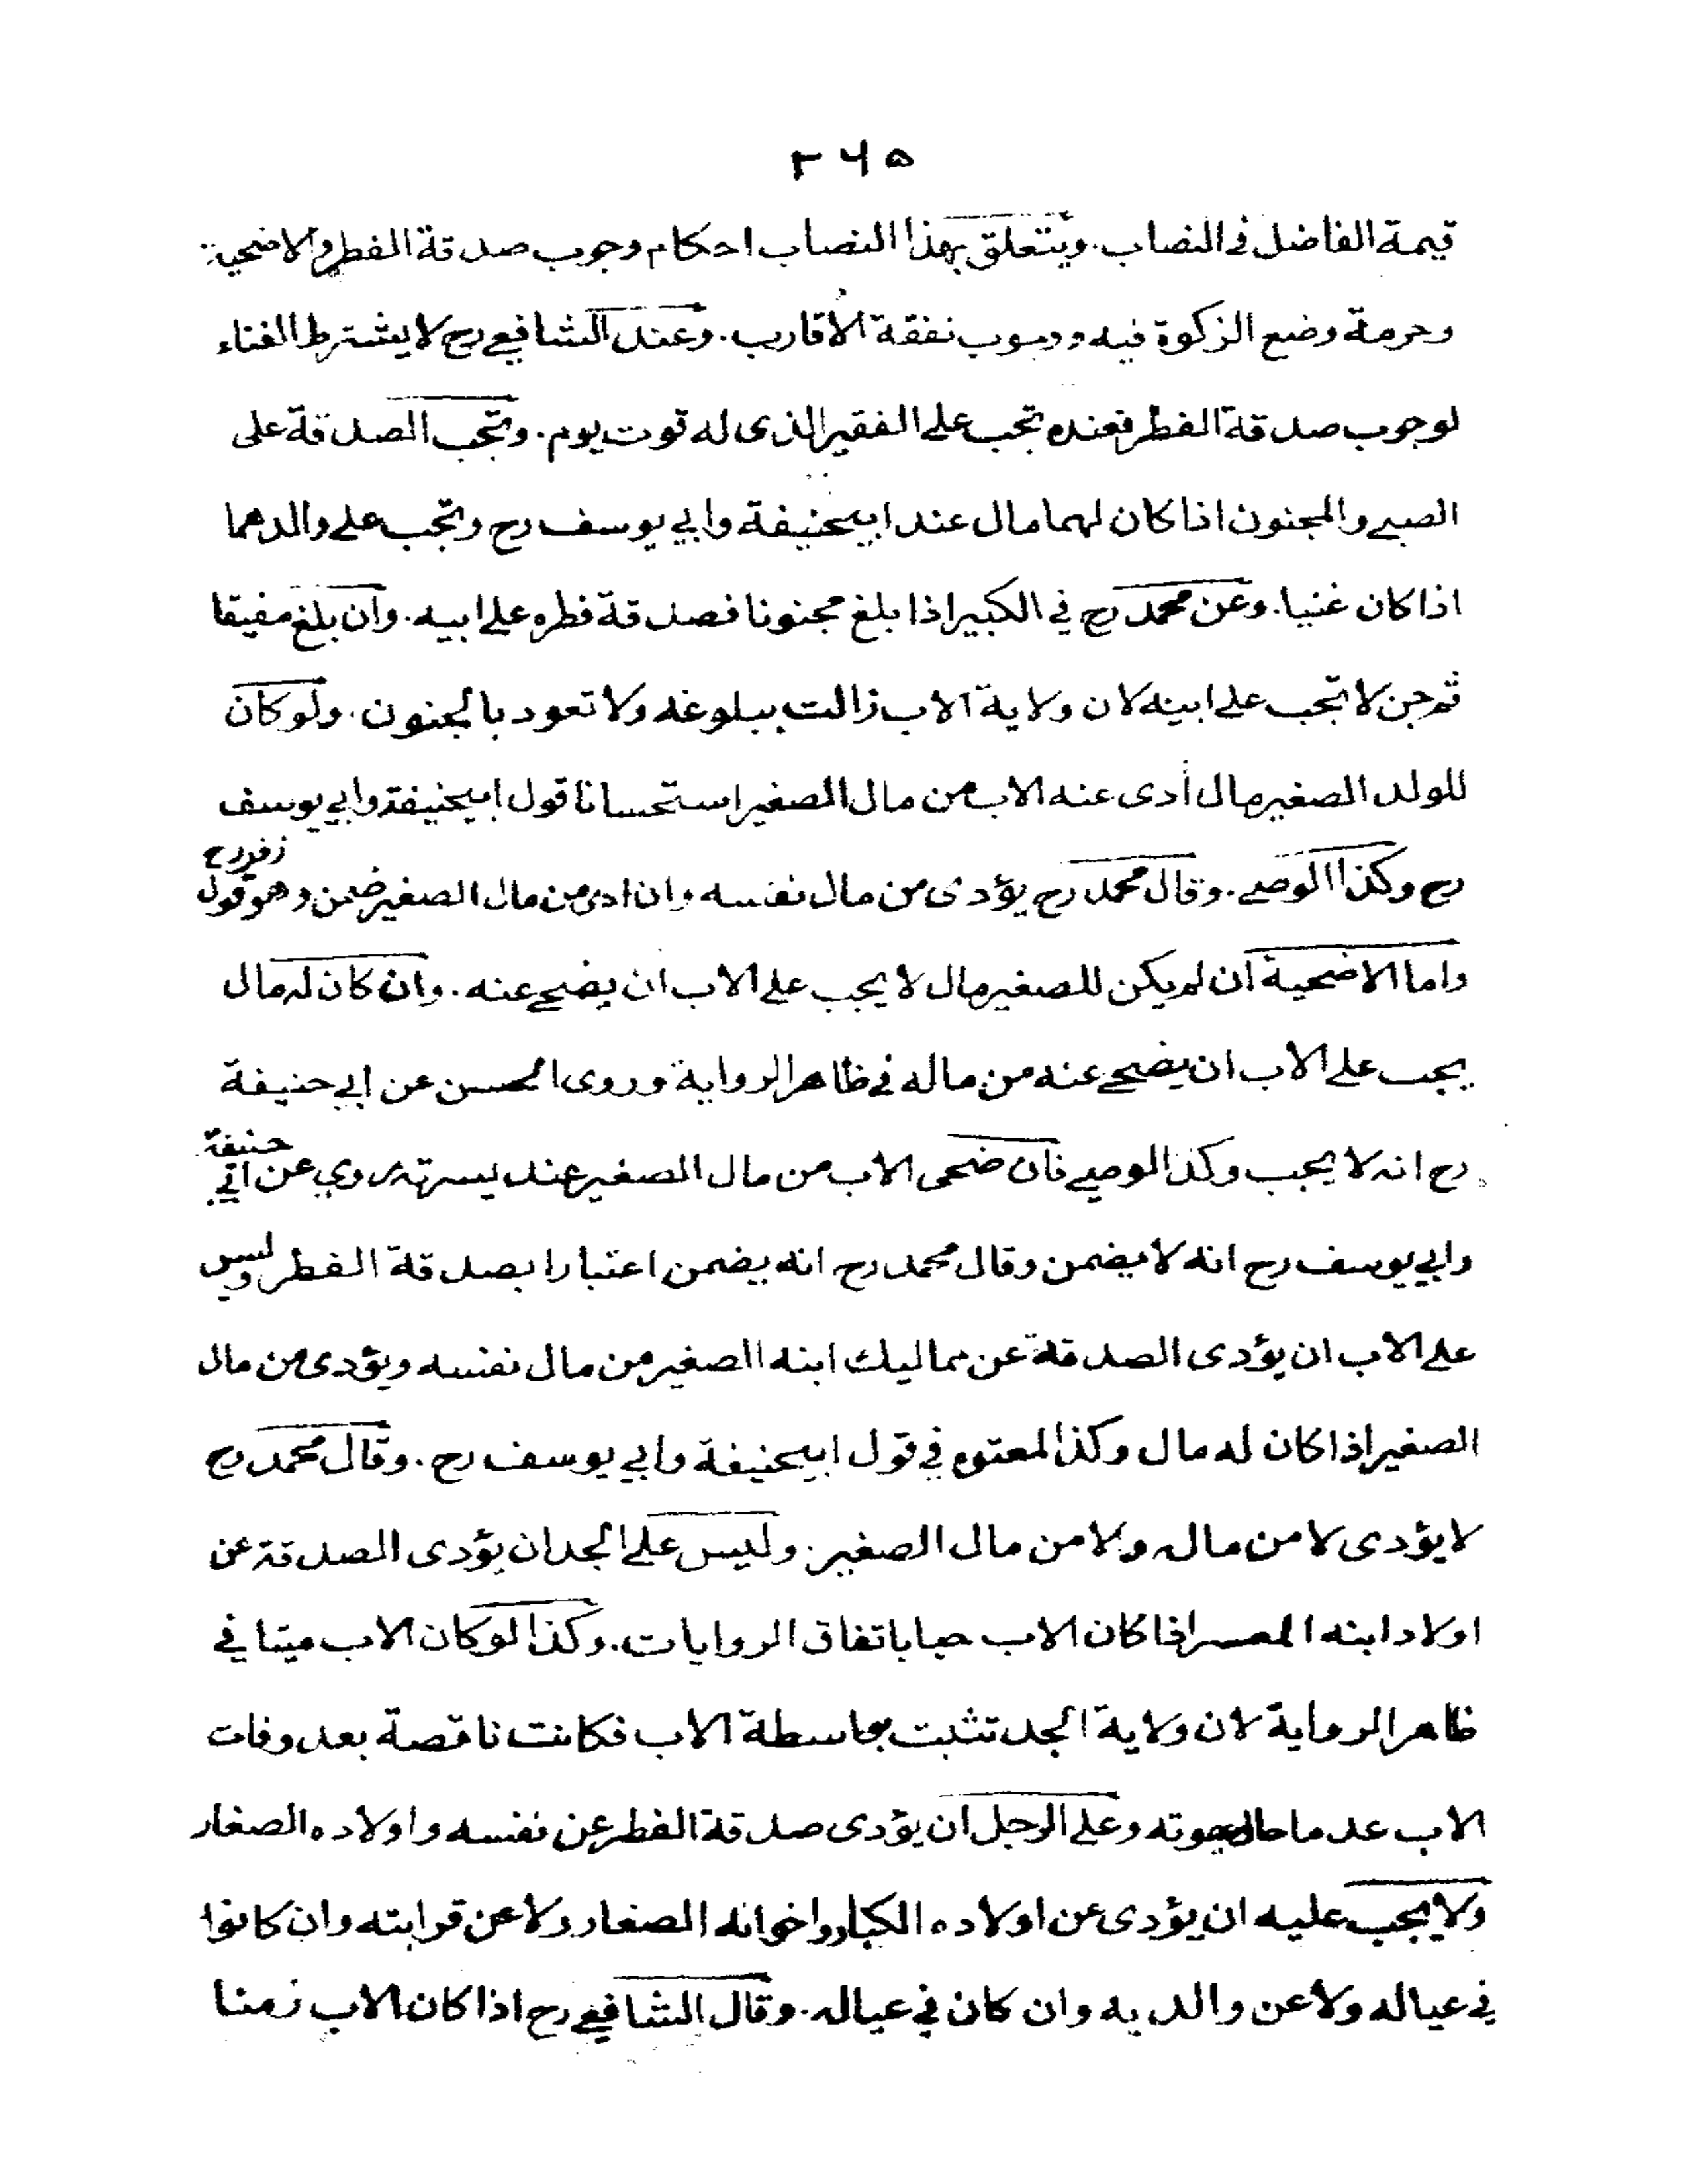 ٢٦٥
قيمة الفاضل فى النصاب. ويتعلق بهذا النصاب احكام وجوب صدقة الفطر والاضحية
وحرمة وضع الزكوة فيه ووجوب نفقة الاقارب. وعند الشافعي رح لا يشترط الغناء
لوجوب صدقة الفطر فعنده تجب على الفقير الذى له قوت يوم. وتجب الصدقة على
الصبي والمجنون اذا كان لهما مال عند ابيحنيفة وابي يوسف رح وتجب على والدهما
اذا كان غنيا. وعن محمد رح في الكبير اذا بلغ مجنونا فصدقة فطره على ابيه. وان بلغ مفيقا
ثم جن لا تجب على ابيه لان ولاية الاب زالت ببلوغه ولا تعود بالجنون. ولو كان
للولد الصغير مال أدى عنه الاب من مال الصغير استحسانا قول ابيحنيفة وابي يوسف
رح وكذا الوصي. وقال محمد رح يؤدى من مال نفسه وان ادى من مال الصغير ضمن وهو قول زفر رح
واما الاضحية ان لم يكن للصغير مال لا يجب على الاب ان يضحي عنه. وان كان له مال
يجب على الاب ان يضحي عنه من ماله في ظاهر الرواية وروى الحسن عن ابي حنيفة
رح انه لا يجب وكذا الوصي فان ضحى الاب من مال الصغير عند روي عن ابي حنيفة
وابي يوسف رح انه لا يضمن وقال محمد رح انه يضمن اعتبارا بصدقة الفطر وليس
على الاب ان يؤدى الصدقة عن مماليك ابنه الصغير من مال نفسه ويؤدى من مال
الصغير اذا كان له مال وكذا المعتوه في قول ابيحنيفة وابي يوسف رح. وقال محمد رح
لا يؤدى لا من ماله ولا من مال الصغير. وليس على الجد ان يؤدى الصدقة عن
اولاد ابنه المعسر اذا كان الاب حيا باتفاق الروايات. وكذا لو كان الاب ميتا في
ظاهر الرواية لان ولاية الجد تثبت بواسطة الاب فكانت ناقصة بعد وفات
الاب وعلى الرجل ان يؤدى صدقة الفطر عن نفسه واولاده الصغار
ولا يجب عليه ان يؤدى عن اولاده الكبار واخوانه الصغار ولا عن قرابته وان كانوا
في عياله ولا عن والديه وان كان في عياله. وقال الشافعي رح اذا كان الاب زمنا